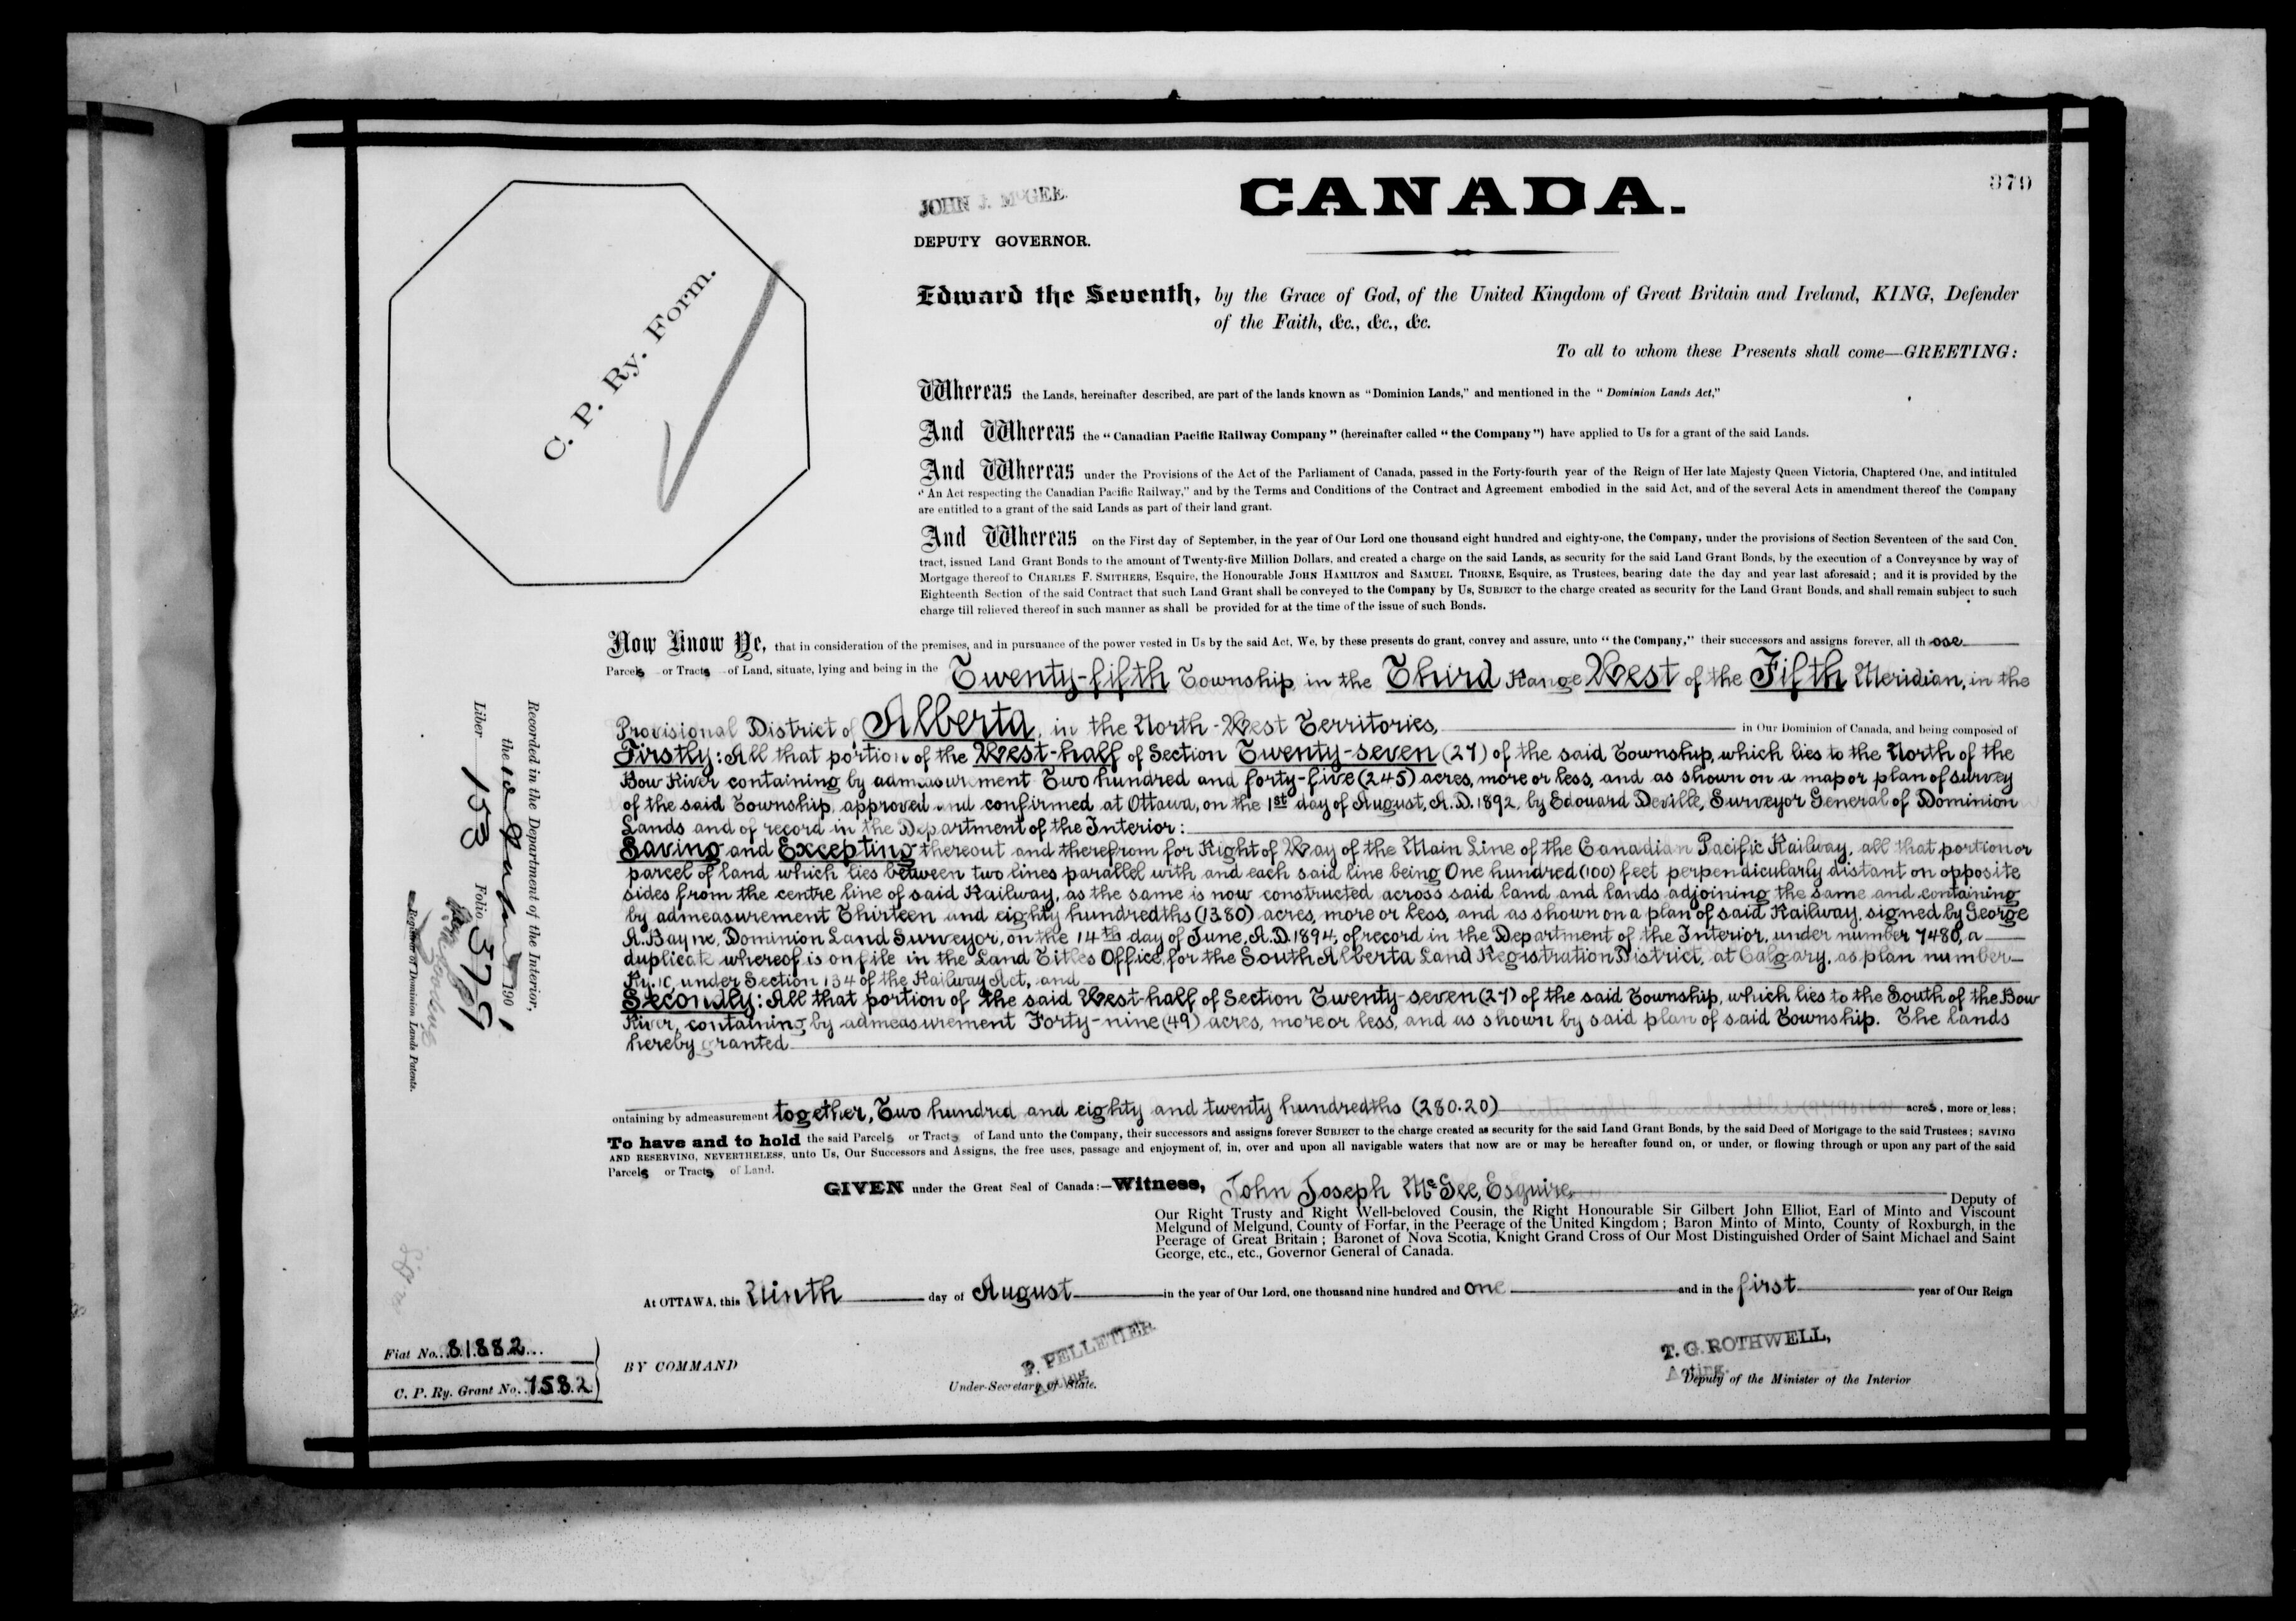 379
JOHN J. McGEE.
DEPUTY GOVERNOR.
CANADA.
C. P. Ry. Form.
Edward the Seventh, by the Grace of God, of the United Kingdom of Great Britain and Ireland, KING, Defender
of the Faith, &c., &c., &c.
To all to whom these Presents shall come—GREETING:
Whereas the Lands, hereinafter described, are part of the lands known as "Dominion Lands," and mentioned in the "Dominion Lands Act,"
And Whereas the "Canadian Pacific Railway Company" (hereinafter called "the Company") have applied to Us for a grant of the said Lands.
And Whereas under the Provisions of the Act of the Parliament of Canada, passed in the Forty-fourth year of the Reign of Her late Majesty Queen Victoria, Chaptered One, and intituled
"An Act respecting the Canadian Pacific Railway," and by the Terms and Conditions of the Contract and Agreement embodied in the said Act, and of the several Acts in amendment thereof the Company
are entitled to a grant of the said Lands as part of their land grant.
And Whereas on the First day of September, in the year of Our Lord one thousand eight hundred and eighty-one, the Company, under the provisions of Section Seventeen of the said Con-
tract, issued Land Grant Bonds to the amount of Twenty-five Million Dollars, and created a charge on the said Lands, as security for the said Land Grant Bonds, by the execution of a Conveyance by way of
Mortgage thereof to CHARLES F. SMITHERS, Esquire, the Honourable JOHN HAMILTON and SAMUEL THORNE, Esquire, as Trustees, bearing date the day and year last aforesaid; and it is provided by the
Eighteenth Section of the said Contract that such Land Grant shall be conveyed to the Company by Us, SUBJECT to the charge created as security for the Land Grant Bonds, and shall remain subject to such
charge till relieved thereof in such manner as shall be provided for at the time of the issue of such Bonds.
Now Know Ye, that in consideration of the premises, and in pursuance of the power vested in Us by the said Act, We, by these presents do grant, convey and assure, unto "the Company," their successors and assigns forever, all those
Parcels or Tracts of Land, situate, lying and being in the Twenty-fifth Township, in the Third Range West of the Fifth Meridian, in the
Provisional District of Alberta, in the North-West Territories, in Our Dominion of Canada, and being composed of
Firstly: All that portion of the West-half of Section Twenty-seven (27) of the said Township, which lies to the North of the
Bow River containing by admeasurement Two hundred and forty-five (245) acres, more or less, and as shown on a map or plan of survey
of the said Township, approved and confirmed at Ottawa, on the 1st day of August, A.D. 1892, by Edouard Deville, Surveyor General of Dominion
Lands and of record in the Department of the Interior:
Saving and Excepting thereout and therefrom for Right of Way of the Main Line of the Canadian Pacific Railway, all that portion or
parcel of land which lies between two lines parallel with and each said line being One hundred (100) feet perpendicularly distant on opposite
sides from the centre line of said Railway, as the same is now constructed across said land and lands adjoining the same and containing
by admeasurement Thirteen and eighty hundredths (13.80) acres, more or less, and as shown on a plan of said Railway, signed by George
A. Bayne, Dominion Land Surveyor, on the 14th day of June, A.D. 1894, of record in the Department of the Interior, under number 7480, a
duplicate whereof is on file in the Land Titles Office, for the South Alberta Land Registration District, at Calgary, as plan number
Ry. 1C, under Section 134 of the Railway Act, and
Secondly: All that portion of the said West-half of Section Twenty-seven (27) of the said Township, which lies to the South of the Bow
River, containing by admeasurement Forty-nine (49) acres, more or less, and as shown by said plan of said Township. The lands
hereby granted
ontaining by admeasurement together, Two hundred and eighty and twenty hundredths (280.20) acres, more or less;
To have and to hold the said Parcels or Tracts of Land unto the Company, their successors and assigns forever SUBJECT to the charge created as security for the said Land Grant Bonds, by the said Deed of Mortgage to the said Trustees; SAVING
AND RESERVING, NEVERTHELESS, unto Us, Our Successors and Assigns, the free uses, passage and enjoyment of, in, over and upon all navigable waters that now are or may be hereafter found on, or under, or flowing through or upon any part of the said
Parcels or Tracts of Land.
GIVEN under the Great Seal of Canada:—Witness, John Joseph McGee, Esquire, Deputy of
Our Right Trusty and Right Well-beloved Cousin, the Right Honourable Sir Gilbert John Elliot, Earl of Minto and Viscount
Melgund of Melgund, County of Forfar, in the Peerage of the United Kingdom; Baron Minto of Minto, County of Roxburgh, in the
Peerage of Great Britain; Baronet of Nova Scotia, Knight Grand Cross of Our Most Distinguished Order of Saint Michael and Saint
George, etc., etc., Governor General of Canada.
At OTTAWA, this Ninth day of August in the year of Our Lord, one thousand nine hundred and one and in the first year of Our Reign
BY COMMAND
P. PELLETIER
Acting
Under-Secretary of State.
T. G. ROTHWELL,
Acting.
Deputy of the Minister of the Interior
Recorded in the Department of the Interior,
the 190
Liber 153 Folio 379
Registrar of Dominion Lands Patents.
Fiat No. 81882
C. P. Ry. Grant No. 1582